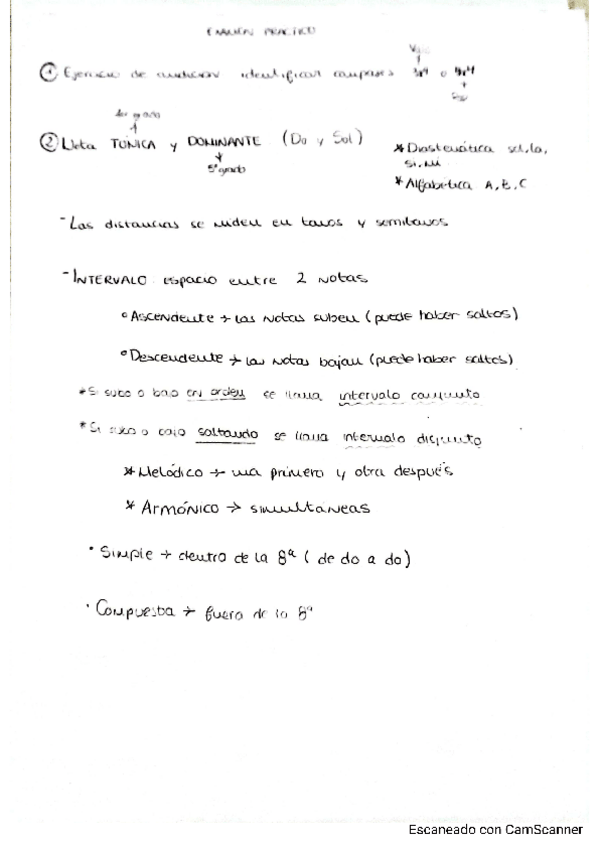 EXAMEN PRÁCTICO
Vals
① Ejercicio de audición identificar compases 3x4 o 4x4
1er grado
② Nota TÓNICA y DOMINANTE (Do y Sol)
5º grado
* Diastemática sol, la, si, mi
* Alfabética A, B, C
- Las distancias se miden en tonos y semitonos
- INTERVALO espacio entre 2 notas
° Ascendente → las notas suben (puede haber saltos)
° Descendente → las notas bajan (puede haber saltos)
* Si subo o bajo en orden se llama intervalo conjunto
* Si subo o bajo saltando se llama intervalo disjunto
* Melódico → una primero y otra después
* Armónico → simultáneas
· Simple → dentro de la 8ª (de do a do)
· Compuesta → fuera de la 8ª
Escaneado con CamScanner